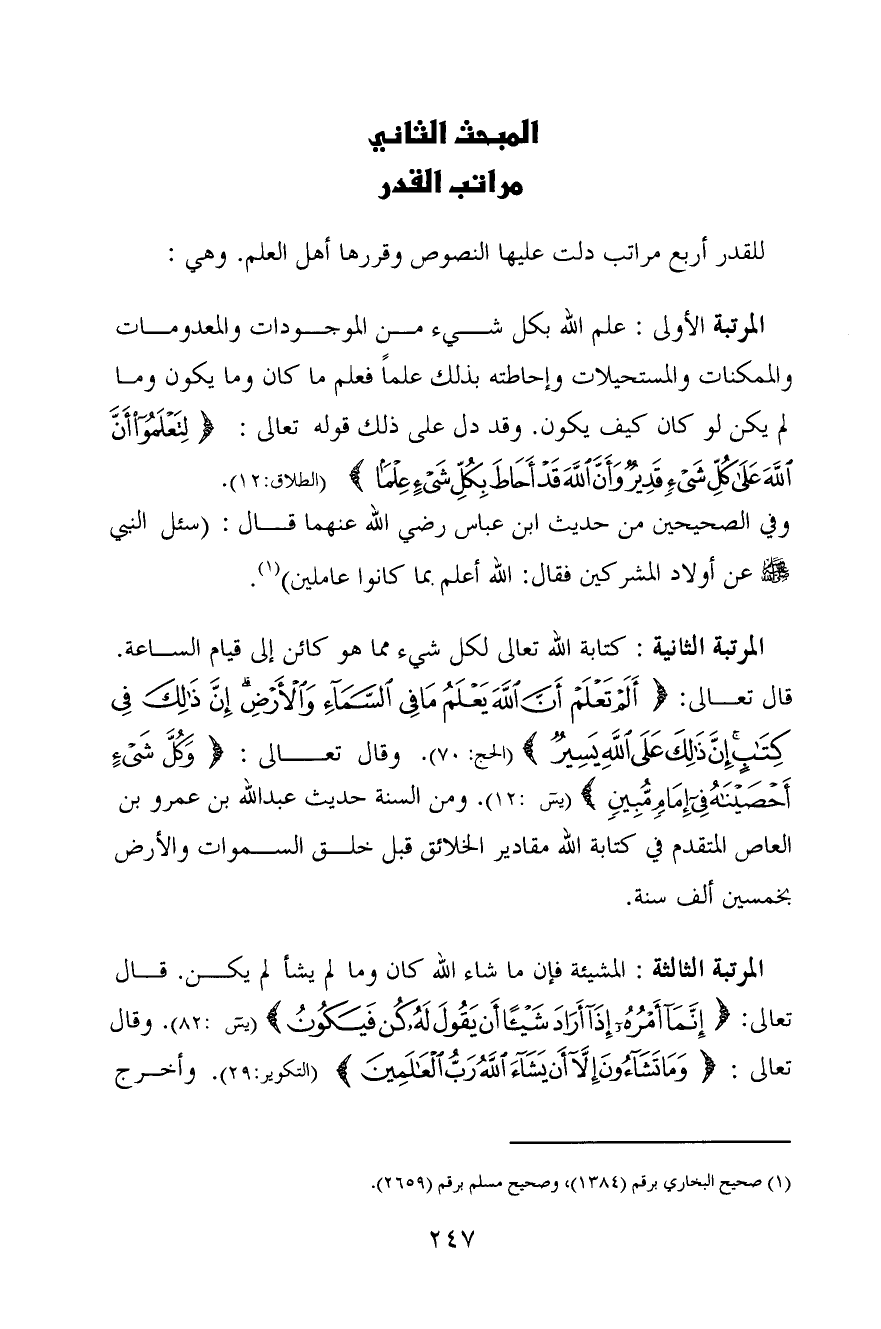 المبحث الثاني
مراتب القدر
للقدر أربع مراتب دلت عليها النصوص وقررها أهل العلم. وهي :
المرتبة الأولى : علم الله بكل شيء من الموجودات والمعدومات
والممكنات والمستحيلات وإحاطته بذلك علماً فعلم ما كان وما يكون وما
لم يكن لو كان كيف يكون. وقد دل على ذلك قوله تعالى : ﴿ لِتَعْلَمُوٓا۟ أَنَّ
ٱللَّهَ عَلَىٰ كُلِّ شَىْءٍ قَدِيرٌ وَأَنَّ ٱللَّهَ قَدْ أَحَاطَ بِكُلِّ شَىْءٍ عِلْمًۢا ﴾ (الطلاق:١٢).
وفي الصحيحين من حديث ابن عباس رضي الله عنهما قال : (سئل النبي
ﷺ عن أولاد المشركين فقال: الله أعلم بما كانوا عاملين)(١).
المرتبة الثانية : كتابة الله تعالى لكل شيء مما هو كائن إلى قيام الساعة.
قال تعالى: ﴿ أَلَمْ تَعْلَمْ أَنَّ ٱللَّهَ يَعْلَمُ مَا فِى ٱلسَّمَآءِ وَٱلْأَرْضِ ۗ إِنَّ ذَٰلِكَ فِى
كِتَـٰبٍ ۚ إِنَّ ذَٰلِكَ عَلَى ٱللَّهِ يَسِيرٌ ﴾ (الحج: ٧٠). وقال تعالى : ﴿ وَكُلَّ شَىْءٍ
أَحْصَيْنَـٰهُ فِىٓ إِمَامٍ مُّبِينٍ ﴾ (يسٓ :١٢). ومن السنة حديث عبدالله بن عمرو بن
العاص المتقدم في كتابة الله مقادير الخلائق قبل خلق السموات والأرض
بخمسين ألف سنة.
المرتبة الثالثة : المشيئة فإن ما شاء الله كان وما لم يشأ لم يكن. قال
تعالى: ﴿ إِنَّمَآ أَمْرُهُۥٓ إِذَآ أَرَادَ شَيْـًٔا أَن يَقُولَ لَهُۥ كُن فَيَكُونُ ﴾ (يسٓ :٨٢). وقال
تعالى : ﴿ وَمَا تَشَآءُونَ إِلَّآ أَن يَشَآءَ ٱللَّهُ رَبُّ ٱلْعَـٰلَمِينَ ﴾ (التكوير:٢٩). وأخرج
(١) صحيح البخاري برقم (١٣٨٤)، وصحيح مسلم برقم (٢٦٥٩).
٢٤٧